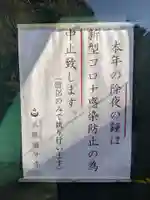 本年の除夜の鐘は
新型コロナ感染防止の為
中止致します。
(僧侶のみで執り行います)